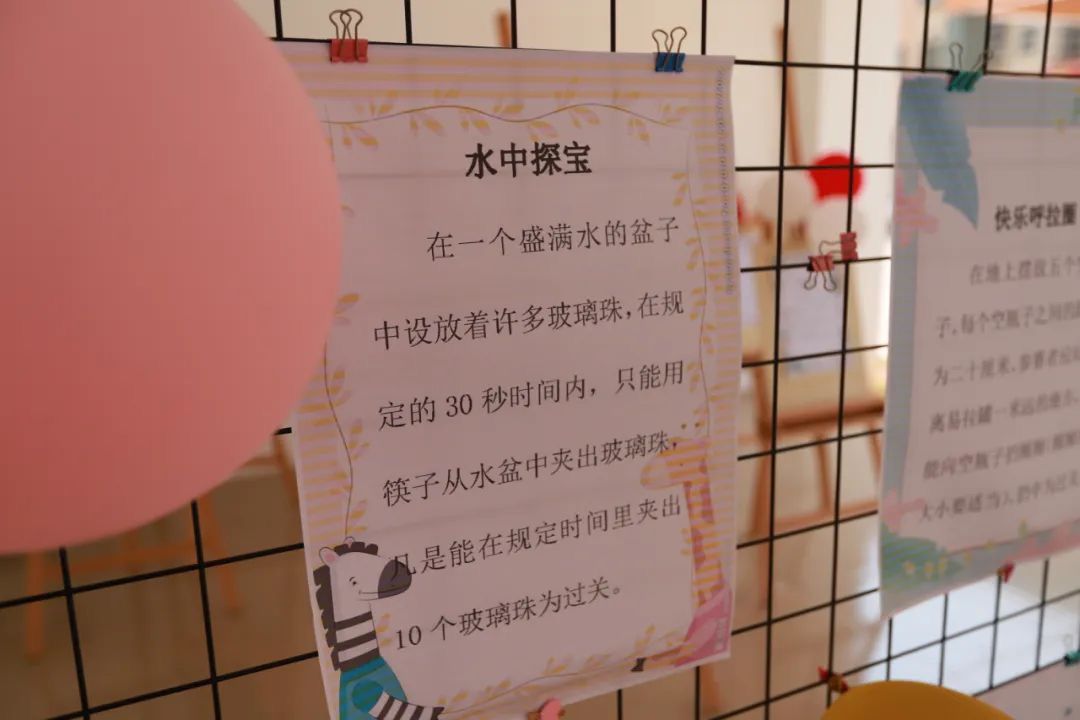 水中探宝
在一个盛满水的盆子
中设放着许多玻璃珠,在规
定的 30 秒时间内，只能用
筷子从水盆中夹出玻璃珠，
凡是能在规定时间里夹出
10 个玻璃珠为过关。
快乐呼拉圈
在地上摆放五个
子,每个空瓶子之间的
为二十厘米,参赛者应
离易拉罐一米远的地方,
能向空瓶子扔圈圈
大小要适当),扔中为过关